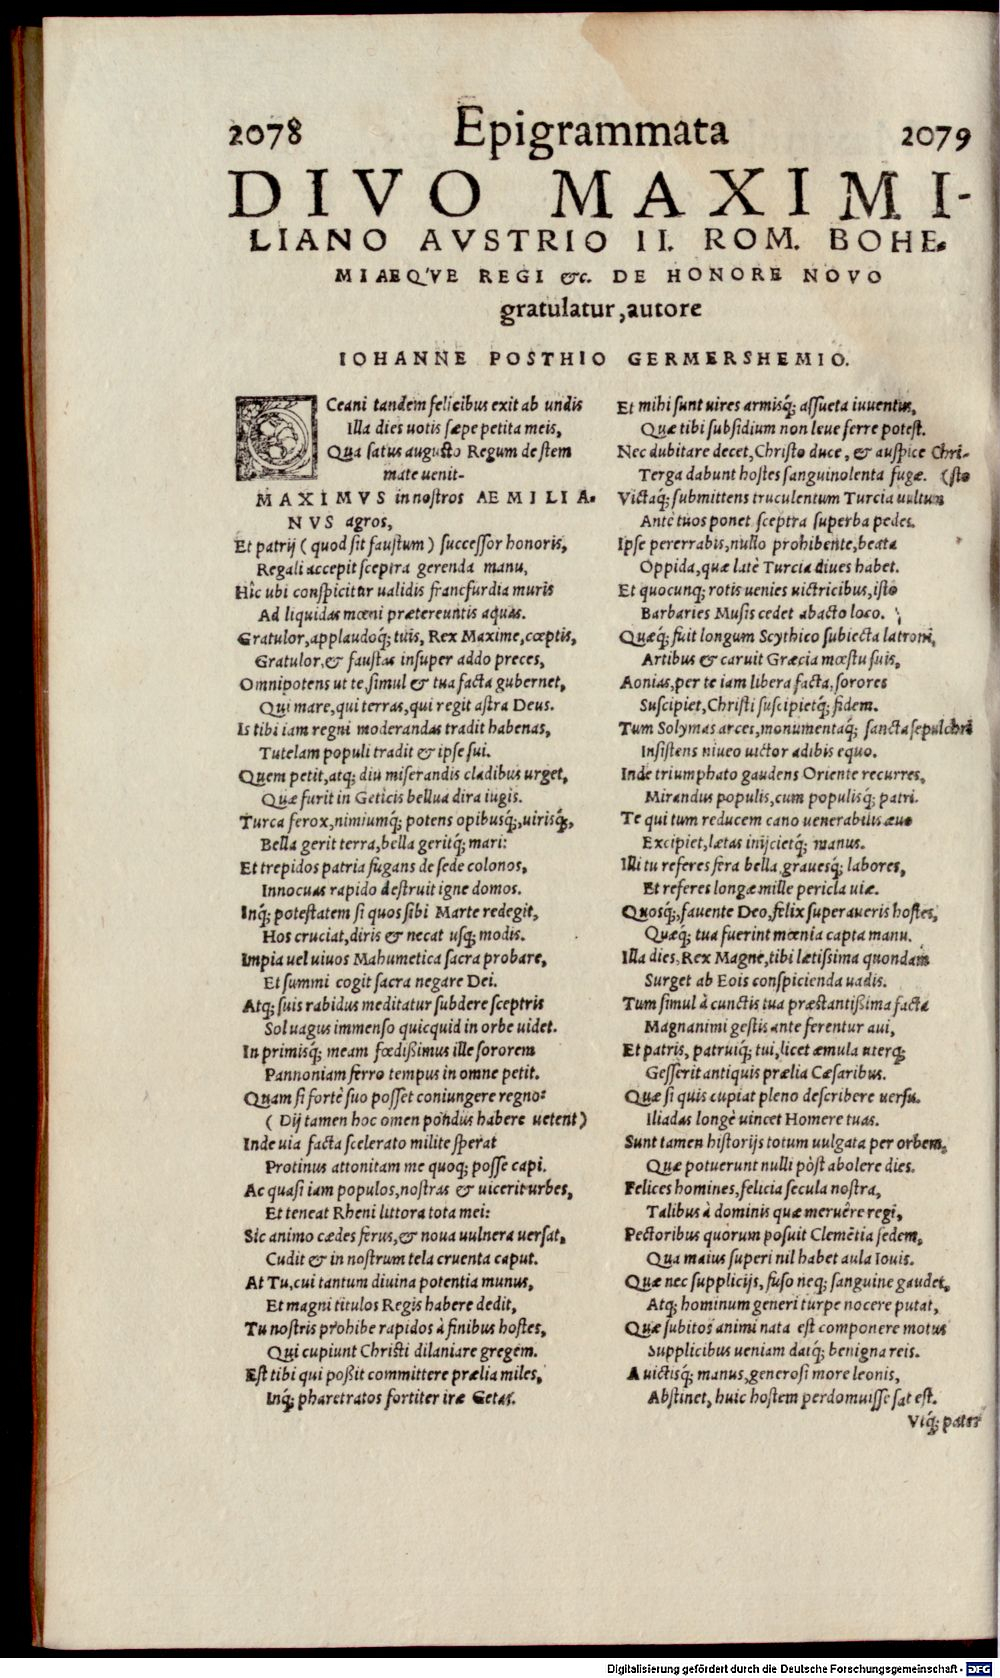 2078 Epigrammata 2079
DIVO MAXIMI-
LIANO AVSTRIO II. ROM. BOHE-
MIAEQ'VE REGI &c. DE HONORE NOVO
gratulatur, autore
IOHANNE POSTHIO GERMERSHEMIO.
OCeani tandem felicibus exit ab undis
Illa dies uotis sæpe petita meis,
Qua satus augusto Regum de stem
mate uenit-
MAXIMVS in nostros AEMILIA-
NVS agros,
Et patrij (quod sit faustum) successor honoris,
Regali accepit sceptra gerenda manu,
Hîc ubi conspicitur ualidis francfurdia muris
Ad liquidas mœni prætereuntis aquas.
Gratulor, applaudoq́; tuis, Rex Maxime, cœptis,
Gratulor, & faustas insuper addo preces,
Omnipotens ut te, simul & tua facta gubernet,
Qui mare, qui terras, qui regit astra Deus.
Is tibi iam regni moderandas tradit habenas,
Tutelam populi tradit & ipse sui.
Quem petit, atq; diu miserandis cladibus urget,
Quæ furit in Geticis bellua dira iugis.
Turca ferox, nimiumq́; potens opibusq́;, uirisq́;,
Bella gerit terra, bella geritq́; mari:
Et trepidos patria fugans de sede colonos,
Innocuas rapido destruit igne domos.
Inq́; potestatem si quos sibi Marte redegit,
Hos cruciat, diris & necat usq; modis.
Impia uel uiuos Mahumetica sacra probare,
Et summi cogit sacra negare Dei.
Atq; suis rabidus meditatur subdere sceptris
Sol uagus immenso quicquid in orbe uidet.
In primisq́; meam fœdißimus ille sororem
Pannoniam ferro tempus in omne petit.
Quam si fortè suo posset coniungere regno:
(Dij tamen hoc omen pondus habere uetent)
Inde uia facta scelerato milite sperat
Protinus attonitam me quoq; posse capi.
Ac quasi iam populos, nostras & uicerit urbes,
Et teneat Rheni littora tota mei:
Sic animo cædes ferus, & noua uulnera uersat,
Cudit & in nostrum tela cruenta caput.
At Tu, cui tantum diuina potentia munus,
Et magni titulos Regis habere dedit,
Tu nostris prohibe rapidos à finibus hostes,
Qui cupiunt Christi dilaniare gregem.
Est tibi qui poßit committere prælia miles,
Inq́; pharetratos fortiter ire Getas.
Et mihi sunt uires armisq́; assueta iuuentus,
Quæ tibi subsidium non leue ferre potest.
Nec dubitare decet, Christo duce, & auspice Chri-
Terga dabunt hostes sanguinolenta fugæ. (sto
Victaq́; submittens truculentum Turcia uultum
Antè tuos ponet sceptra superba pedes.
Ipse pererrabis, nullo prohibente, beata
Oppida, quæ latè Turcia diues habet.
Et quocunq; rotis uenies uictricibus, isto
Barbaries Musis cedet abacto loco.
Quæq́; fuit longum Scythico subiecta latroni,
Artibus & caruit Græcia mœstu suis,
Aonias, per te iam libera facta, sorores
Suscipiet, Christi suscipietq́; fidem.
Tum Solymas arces, monumentaq́; sancta sepulchri
Insistens niueo uictor adibis equo.
Inde triumphato gaudens Oriente recurres,
Mirandus populis, cum populisq́; patri.
Te qui tum reducem cano uenerabilis æuo
Excipiet, lætas inijcietq́; manus.
Illi tu referes fera bella, grauesq́; labores,
Et referes longæ mille pericla uiæ.
Quosq́;, fauente Deo, felix superaueris hostes,
Quæq́; tua fuerint mœnia capta manu.
Illa dies, Rex Magne, tibi lætissima quondam
Surget ab Eois conspicienda uadis.
Tum simul à cunctis tua præstantißima facta
Magnanimi gestis ante ferentur aui,
Et patris, patruiq́; tui, licet æmula uterq;
Gesserit antiquis prælia Cæsaribus.
Quæ si quis cupiat pleno describere uersu.
Iliadas longè uincet Homere tuas.
Sunt tamen historijs totum uulgata per orbem,
Quæ potuerunt nulli pòst abolere dies.
Felices homines, felicia secula nostra,
Talibus à dominis quæ meruêre regi,
Pectoribus quorum posuit Clemẽtia sedem,
Qua maius superi nil habet aula Iouis.
Quæ nec supplicijs, fuso neq; sanguine gaudet,
Atq; hominum generi turpe nocere putat,
Quæ subitos animi nata est componere motus
Supplicibus ueniam datq́; benigna reis.
A uictisq́; manus, generosi more leonis,
Abstinet, huic hostem perdomuisse sat est.
Vtq́; pater
Digitalisierung gefördert durch die Deutsche Forschungsgemeinschaft - DFG